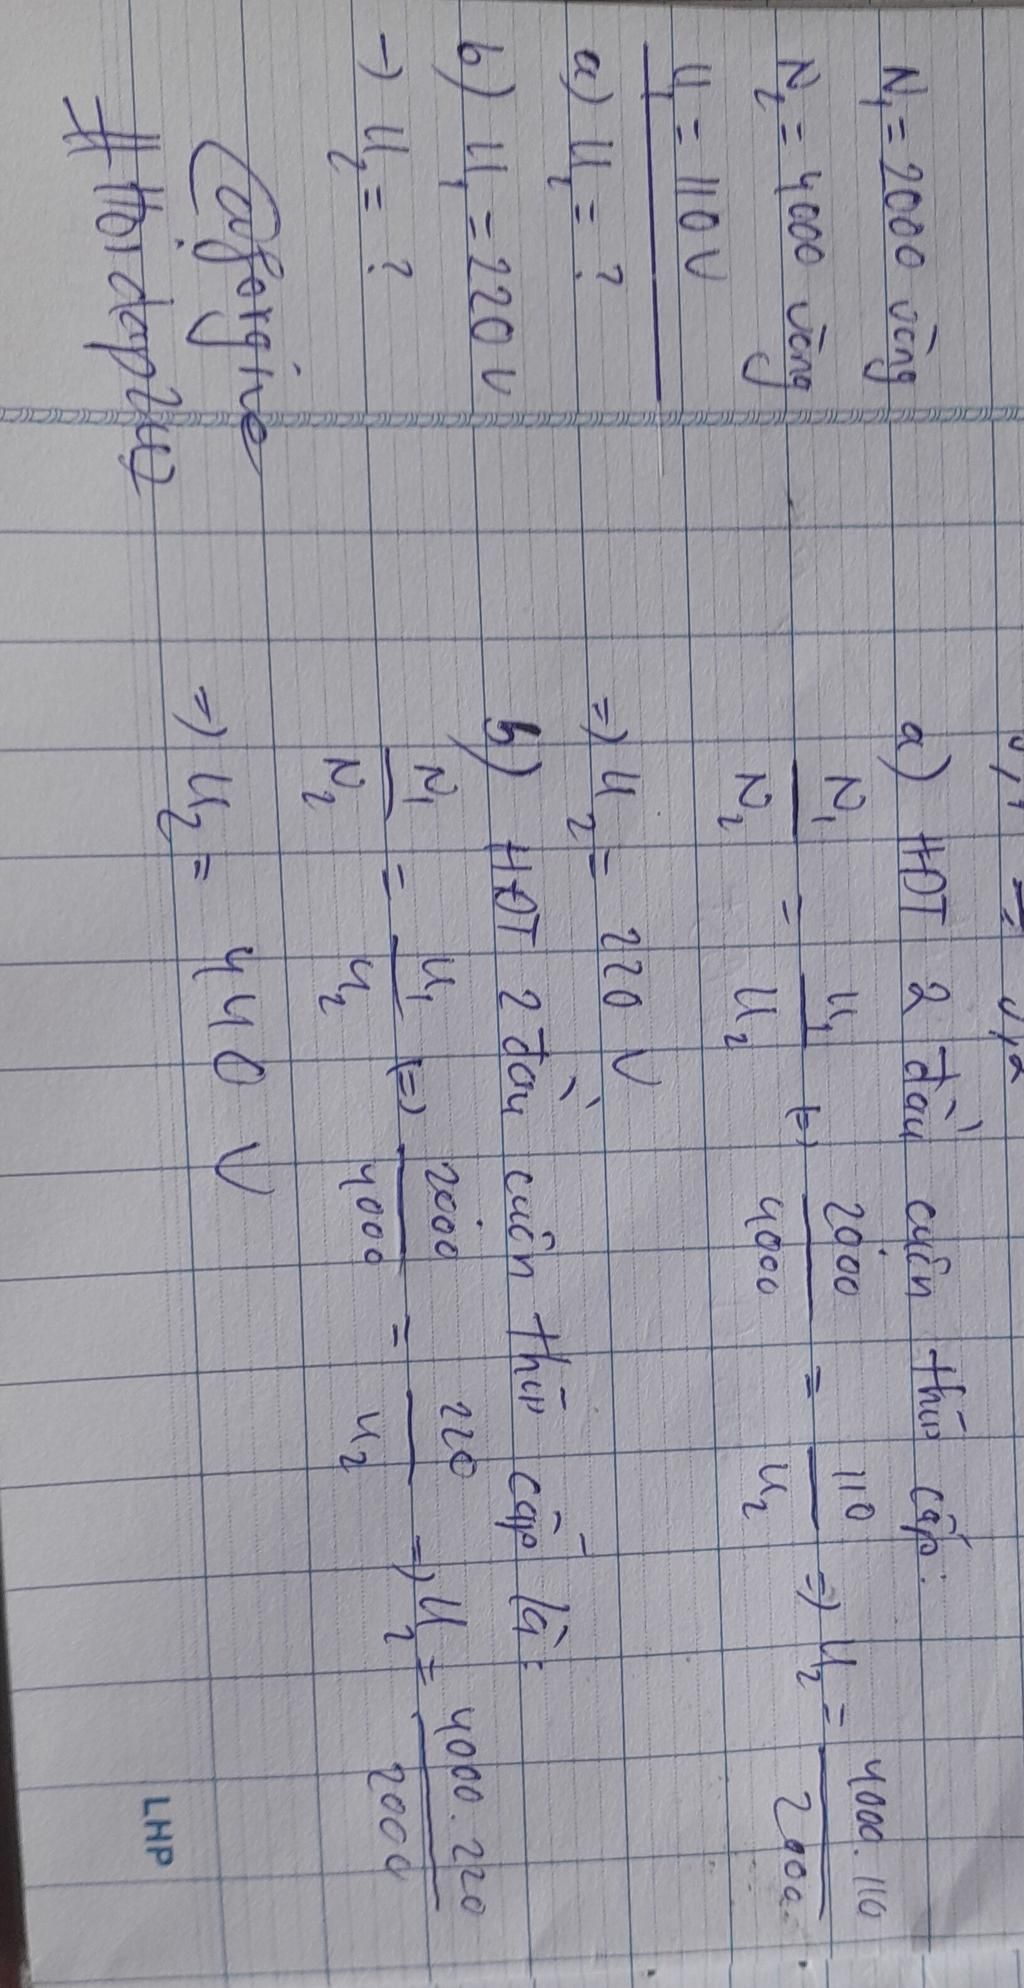 N₁ = 2000 vòng
N₂ = 4000 vòng
U₁ = 110 V
a) U₂ = ?
b) U₁ = 220 V
→ U₂ = ?
# Hoidap247
a) HĐT 2 đầu cuộn thứ cấp:
N₁/N₂ = U₁/U₂ (=) 2000/4000 = 110/U₂ =) U₂ = 4000.110/2000
=) U₂ = 220 V
b) HĐT 2 đầu cuộn thứ cấp là:
N₁/N₂ = U₁/U₂ (=) 2000/4000 = 220/U₂ =) U₂ = 4000.220/2000
=) U₂ = 440 V
LHP